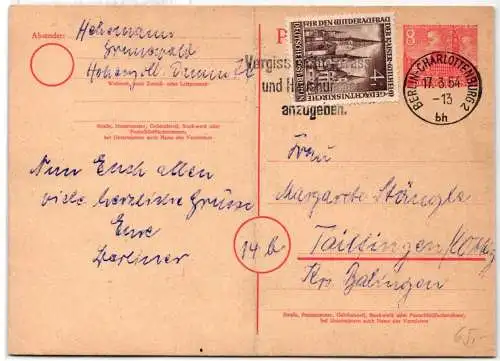 Absender:
Hehermanns
Grunewald
Wohnort, auch Zustell- oder Leitpostamt
Straße, Hausnummer, Gebäudeteil, Stockwerk oder
Postschließfachnummer,
bei Untermietern auch Name des Vermieters
Nun Euch allen
viele herzliche Grüsse
Eure
Berliner
P
FÜR DEN WIEDERAUFBAU
DER KAISER-WILHELM
GEDÄCHTNISKIRCHE
DEUTSCHE POST BERLIN
4
8
Vergiss
und
anzugeben.
BERLIN-CHARLOTTENBURG 2
17.3.54
-13
bh
Frau
Margarete Stängle
14b
Tailfingen/
Krs. Balingen
Straße, Hausnummer, Gebäudeteil, Stockwerk oder Postschließfachnummer,
bei Untermietern auch Name des Vermieters
65,-